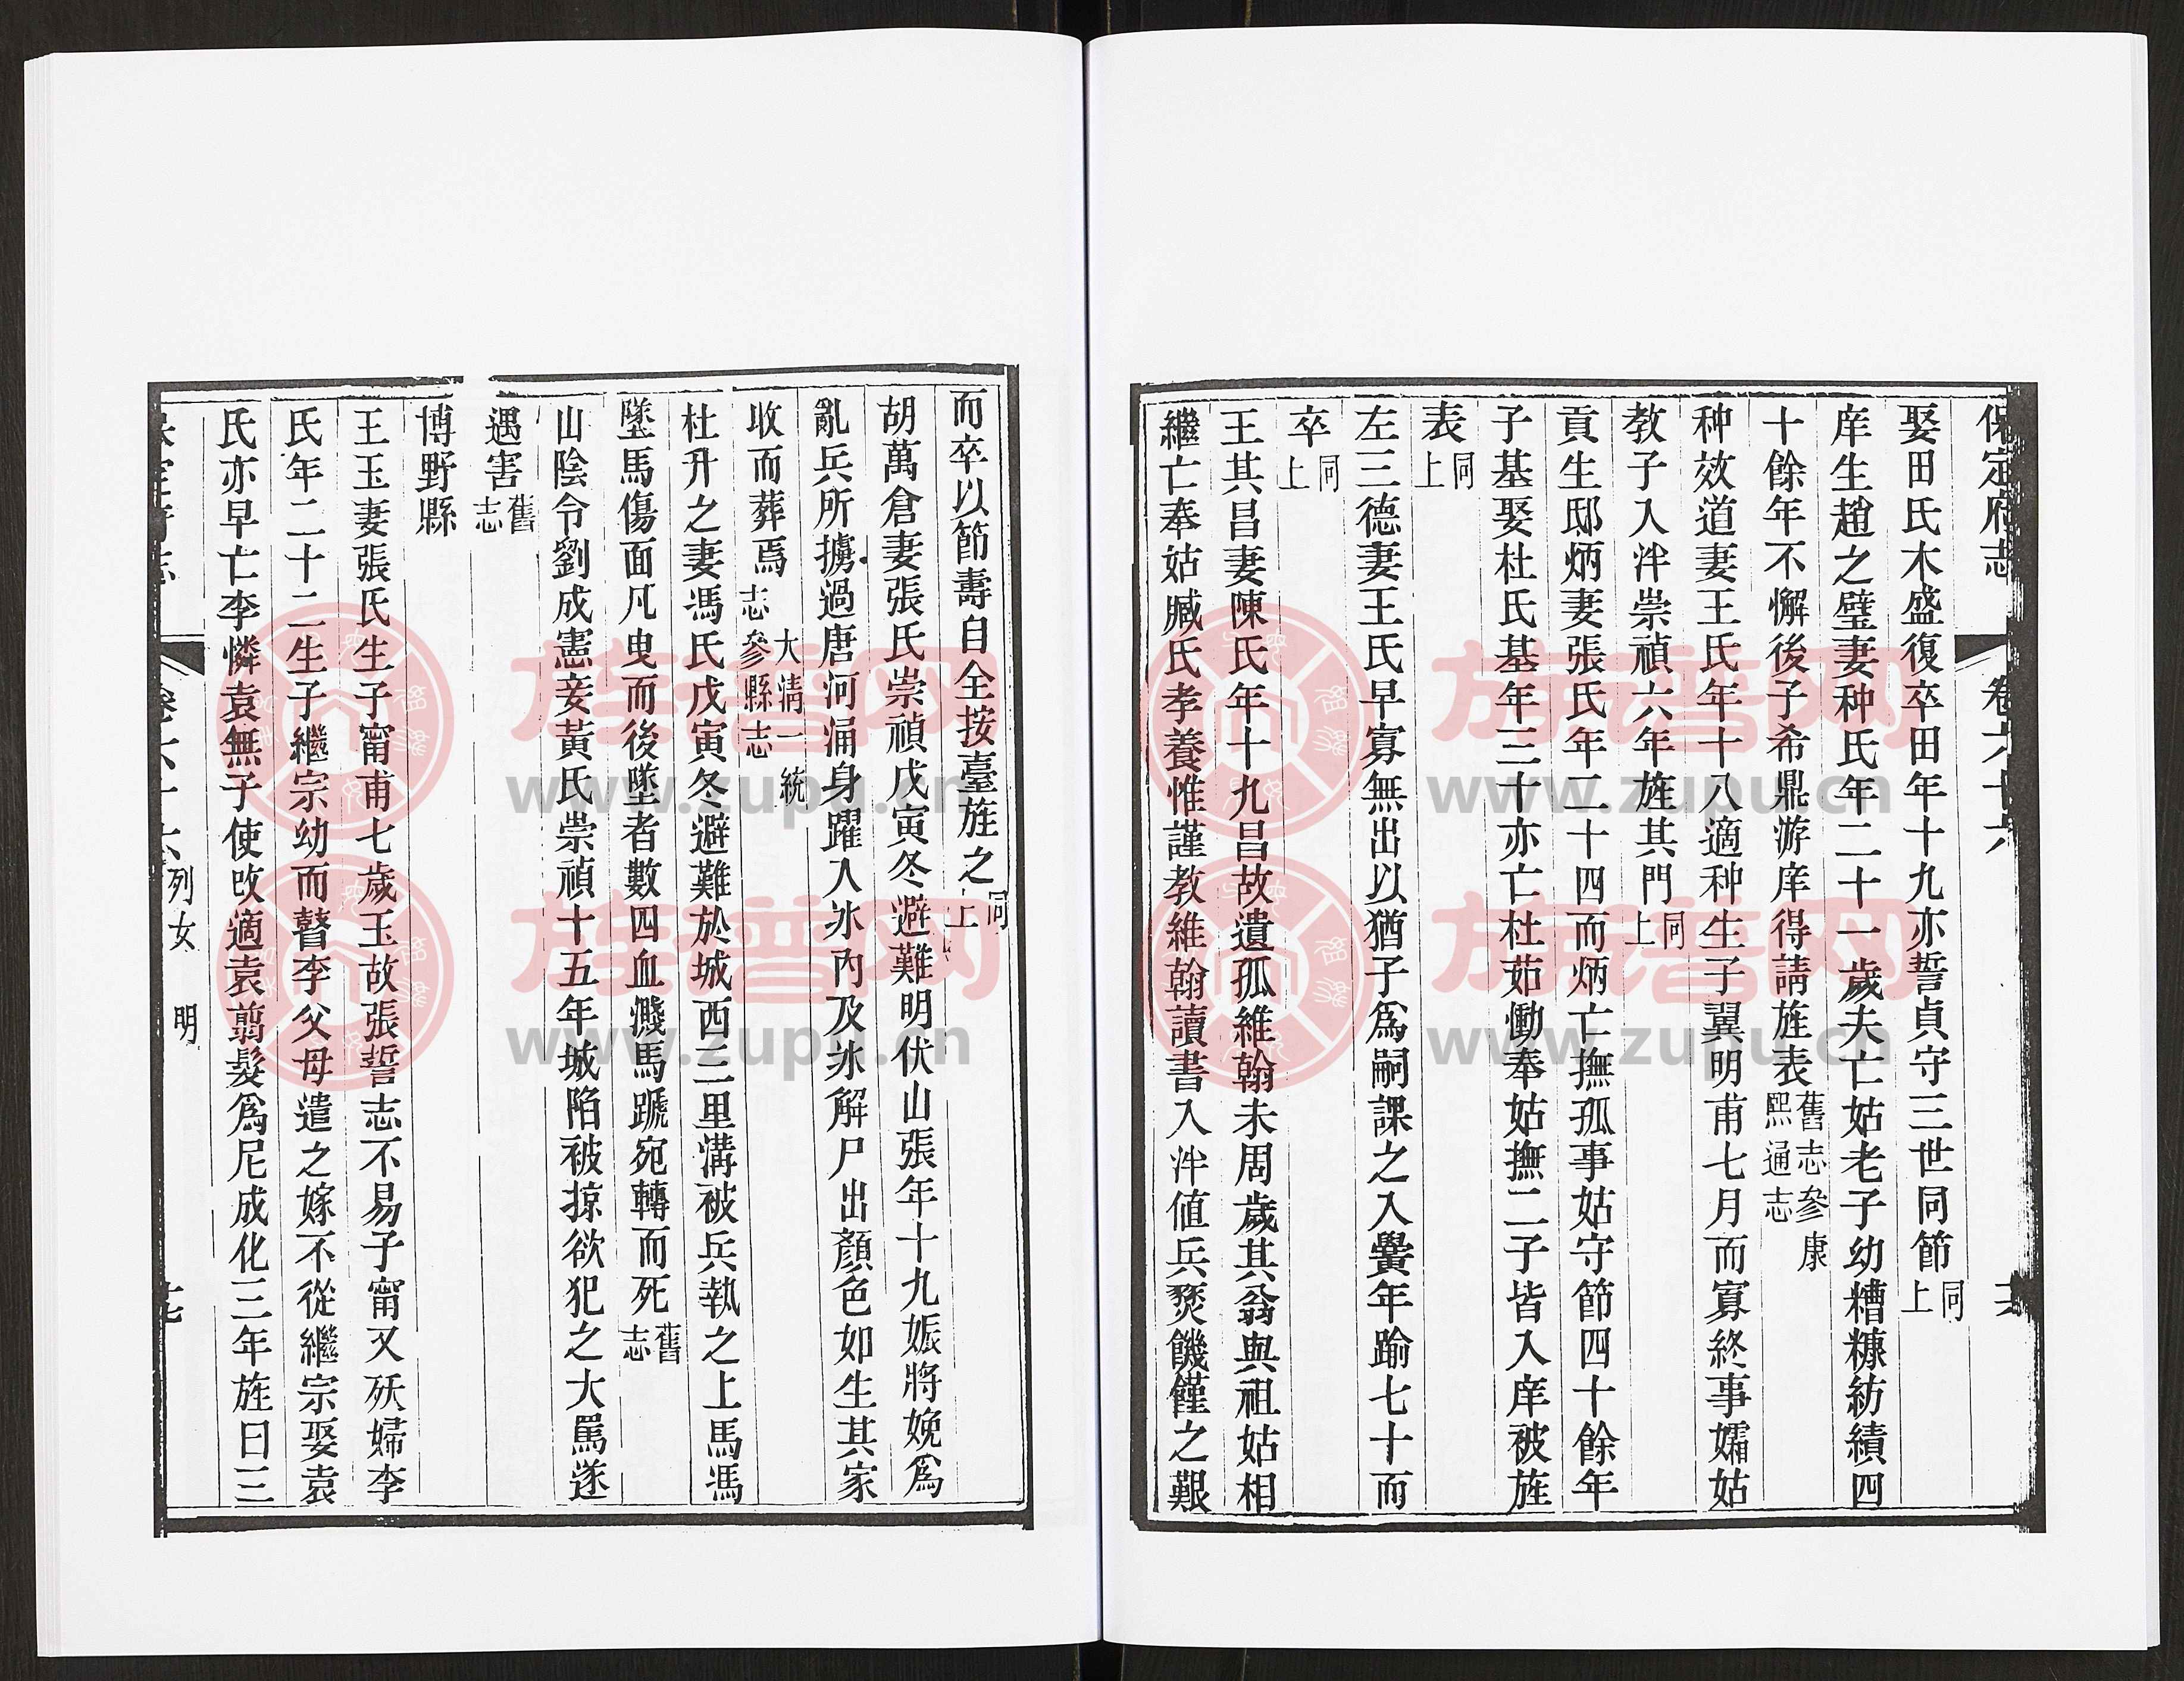 保定府志 卷六十六
娶田氏木盛復卒田年十九亦誓貞守三世同節同上
庠生趙之璧妻种氏年二十一歲夫亡姑老子幼糟糠紡績四
十餘年不懈後子希鼎游庠得請旌表舊志參康熙通志
种效道妻王氏年十八適种生子翼明甫七月而寡終事孀姑
教子入泮崇禎六年旌其門同上
貢生邸炳妻張氏年二十四而炳亡撫孤事姑守節四十餘年
子基娶杜氏基年三十亦亡杜茹慟奉姑撫二子皆入庠被旌
表同上
左三德妻王氏早寡無出以猶子爲嗣課之入黌年踰七十而
卒同上
王其昌妻陳氏年十九昌故遺孤維翰未周歲其翁與祖姑相
繼亡奉姑臧氏孝養惟謹教維翰讀書入泮值兵燹饑饉之艱
而卒以節壽自全按臺旌之同上
胡萬倉妻張氏崇禎戊寅冬避難明伏山張年十九娠將娩爲
亂兵所擄過唐河涌身躍入冰內及冰解尸出顏色如生其家
收而葬焉大清一統志參縣志
杜升之妻馮氏戊寅冬避難於城西三里溝被兵執之上馬馮
墜馬傷面凡曳而後墜者數四血濺馬蹏宛轉而死舊志
山陰令劉成憲妾黃氏崇禎十五年城陷被掠欲犯之大罵遂
遇害舊志
博野縣
王玉妻張氏生子甯甫七歲玉故張誓志不易子甯又殀婦李
氏年二十二生子繼宗幼而瞽李父母遣之嫁不從繼宗娶袁
氏亦早亡李憐袁無子使改適袁翦髮爲尼成化三年旌曰三
列女 明
族譜网
www.zupu.cn
族譜网
www.zupu.cn
族譜网
www.zupu.cn
族譜网
www.zupu.cn